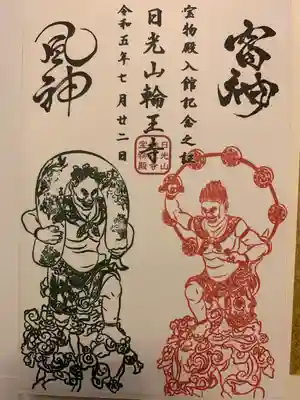 雷神
宝物殿入館記念之証
日光山輪王寺
日光山
宝物殿
令和五年七月廿二日
風神